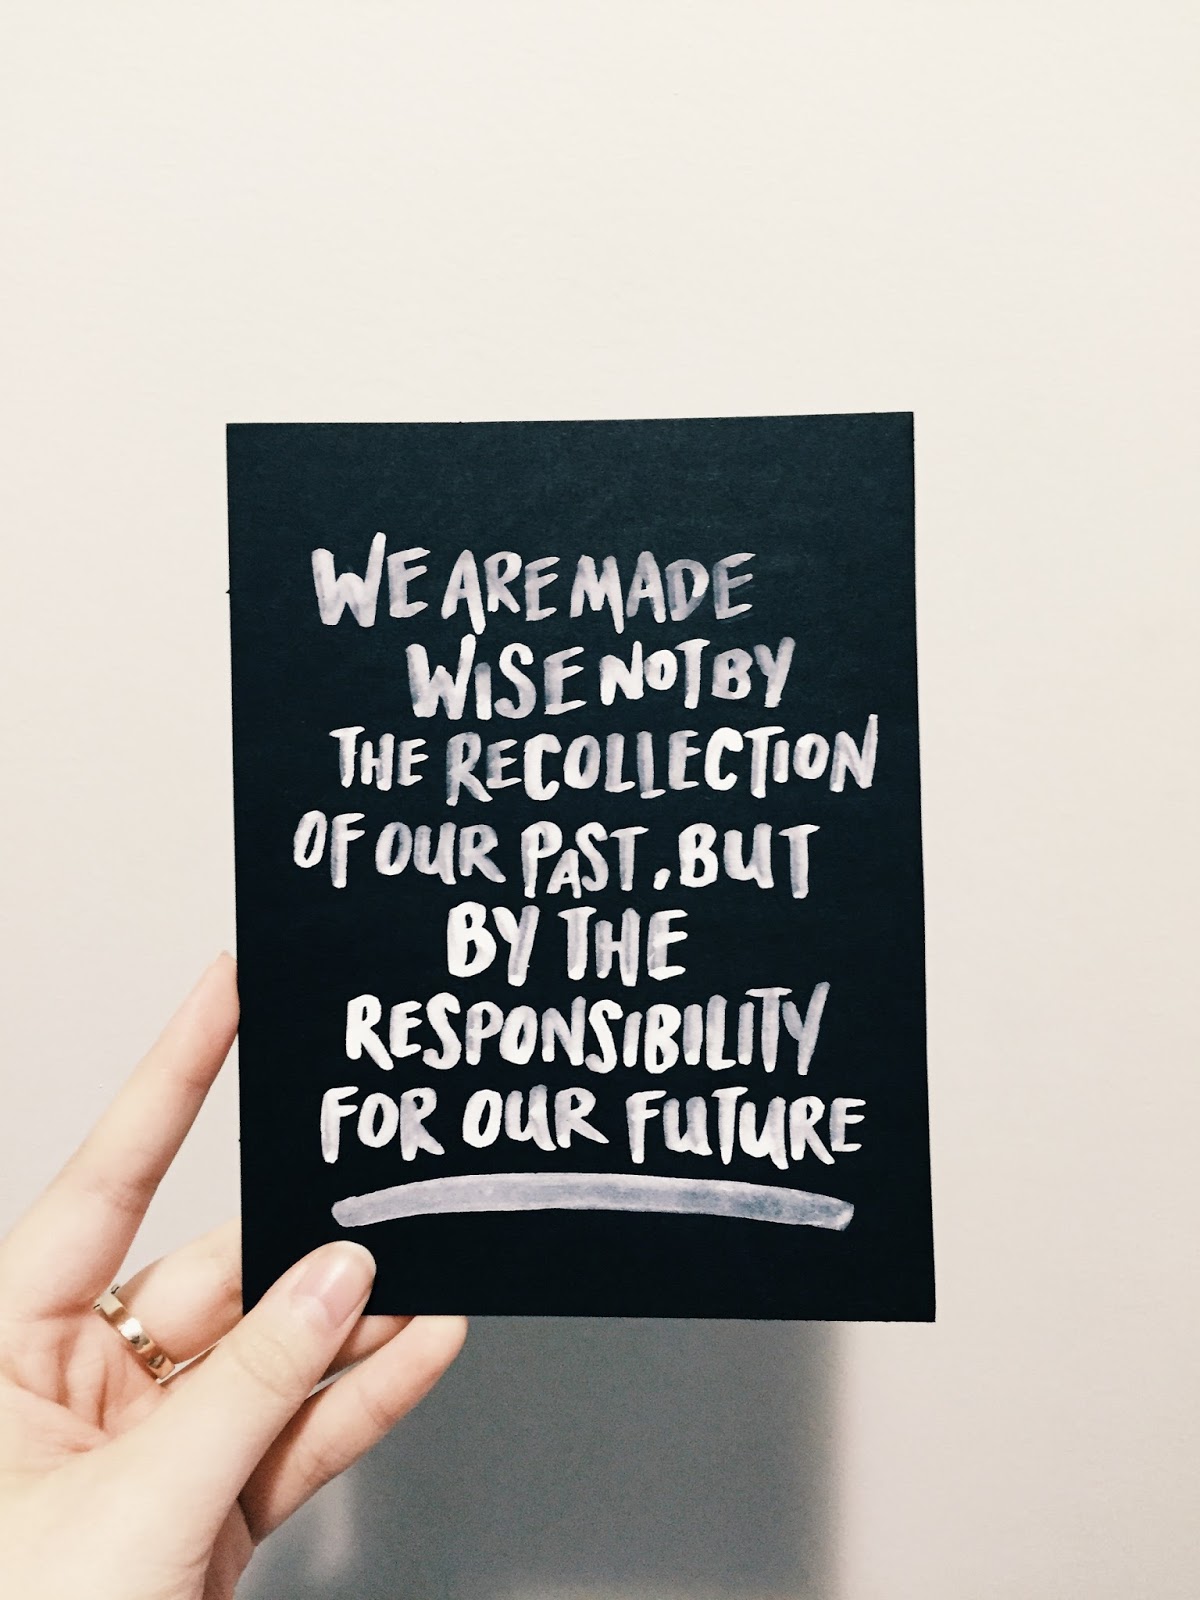 WE ARE MADE
WISE NOT BY
THE RECOLLECTION
OF OUR PAST, BUT
BY THE
RESPONSIBILITY
FOR OUR FUTURE